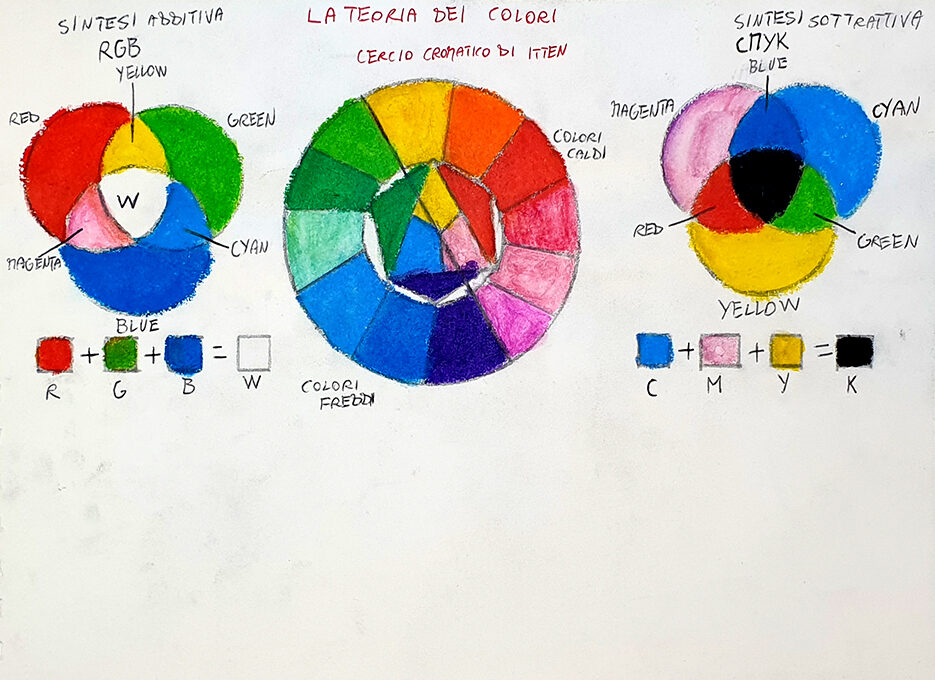 SINTESI ADDITIVA
RGB
YELLOW
RED
GREEN
W
MAGENTA
CYAN
BLUE
R + G + B = W
LA TEORIA DEI COLORI
CERCIO CROMATICO DI ITTEN
COLORI
CALDI
COLORI
FREDDI
SINTESI SOTTRATTIVA
CMYK
BLUE
MAGENTA
CYAN
RED
GREEN
YELLOW
C + M + Y = K